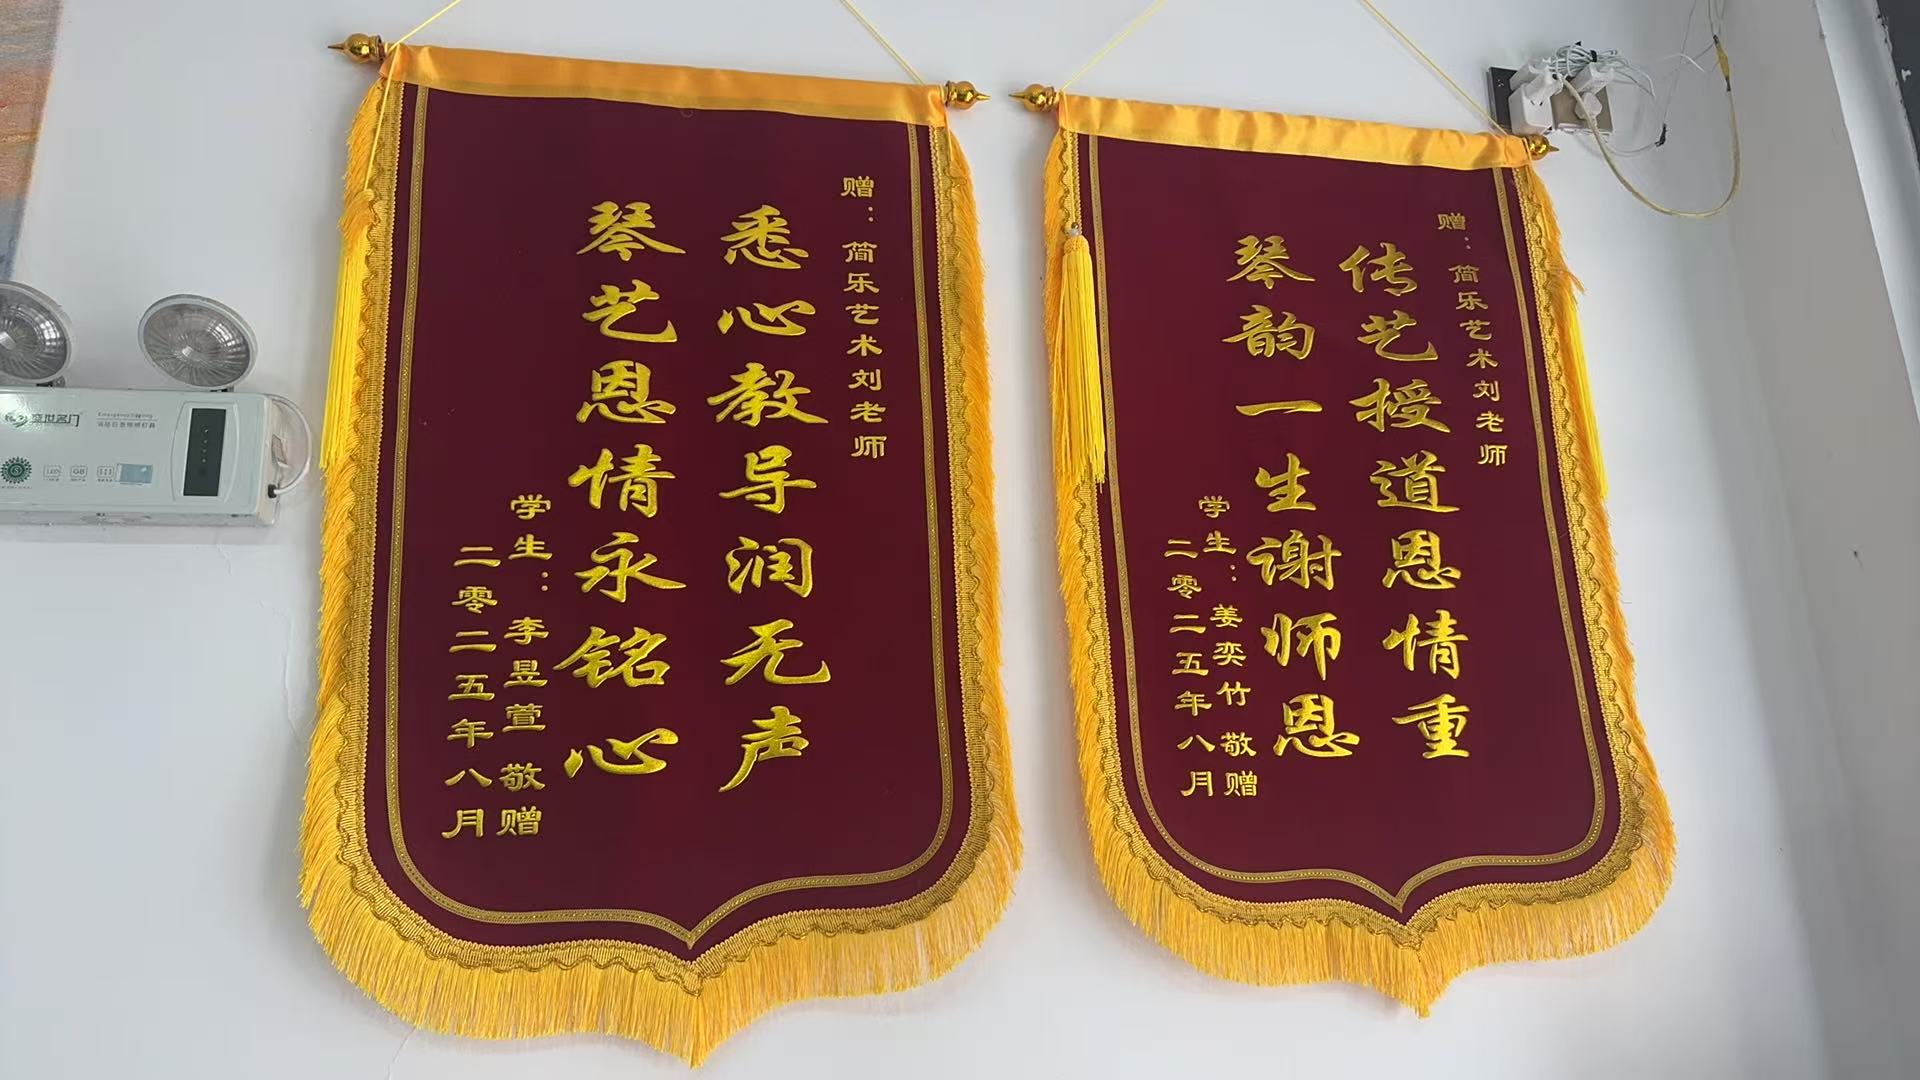 赠：简乐艺术刘老师
悉心教导润无声
琴艺恩情永铭心
学生：李昱萱 敬赠
二零二五年八月
赠：简乐艺术刘老师
传艺授道恩情重
琴韵一生谢师恩
学生：姜奕竹 敬赠
二零二五年八月
盛世名门
消防应急照明灯具
LED
GB